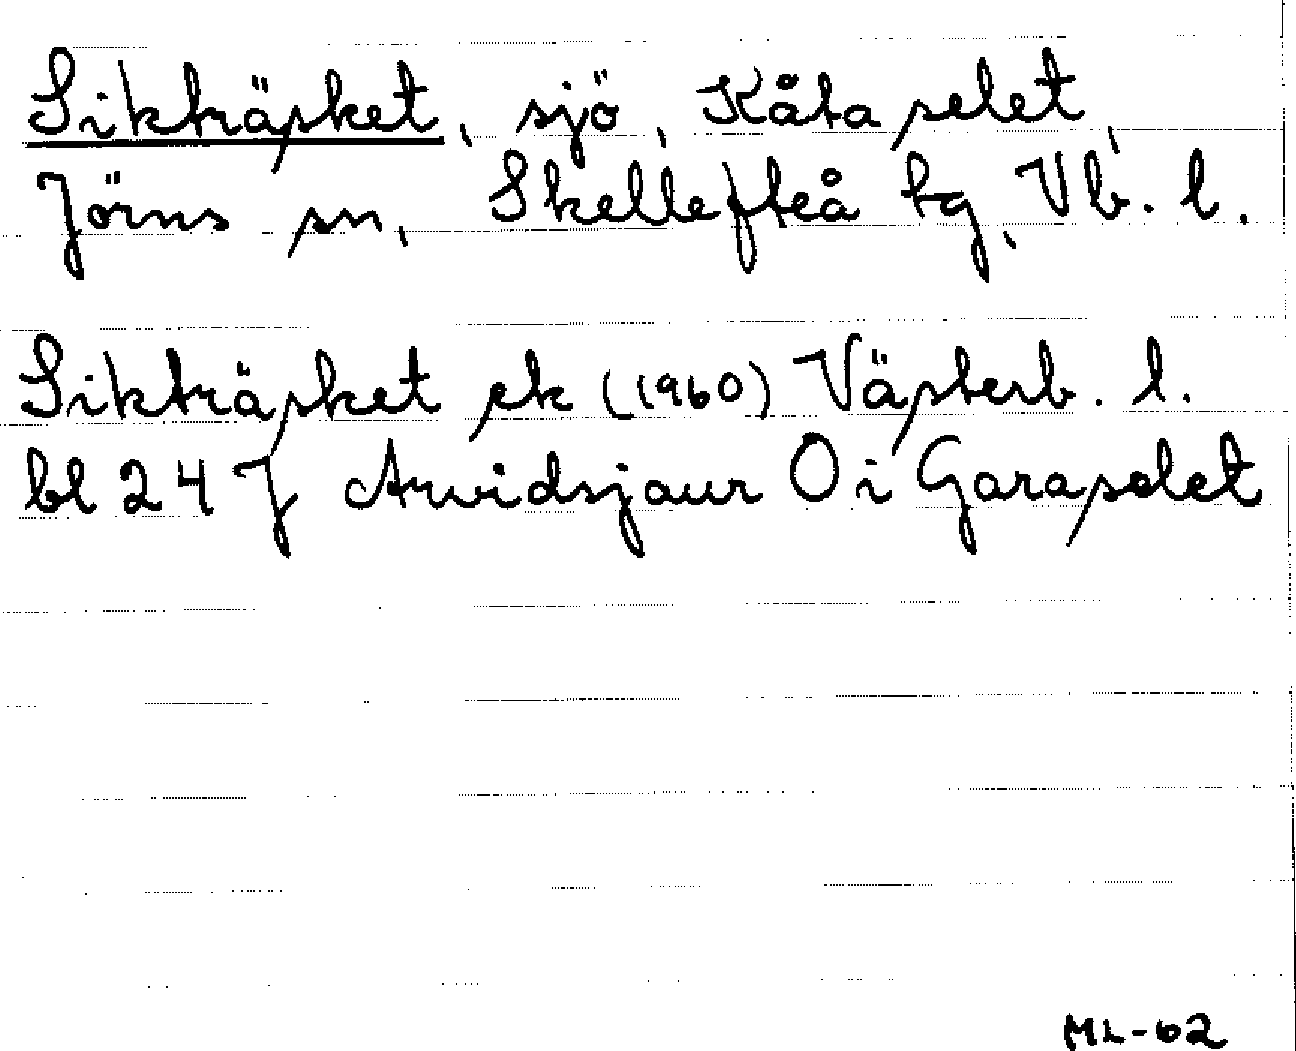 Sikträsket, sjö, Kåtaselet,
Jörns sn, Skellefteå tg, Vb. l.
Sikträsket ek (1960) Västerb. l.
bl 24 J Arvidsjaur O i Garaselet
ML-62